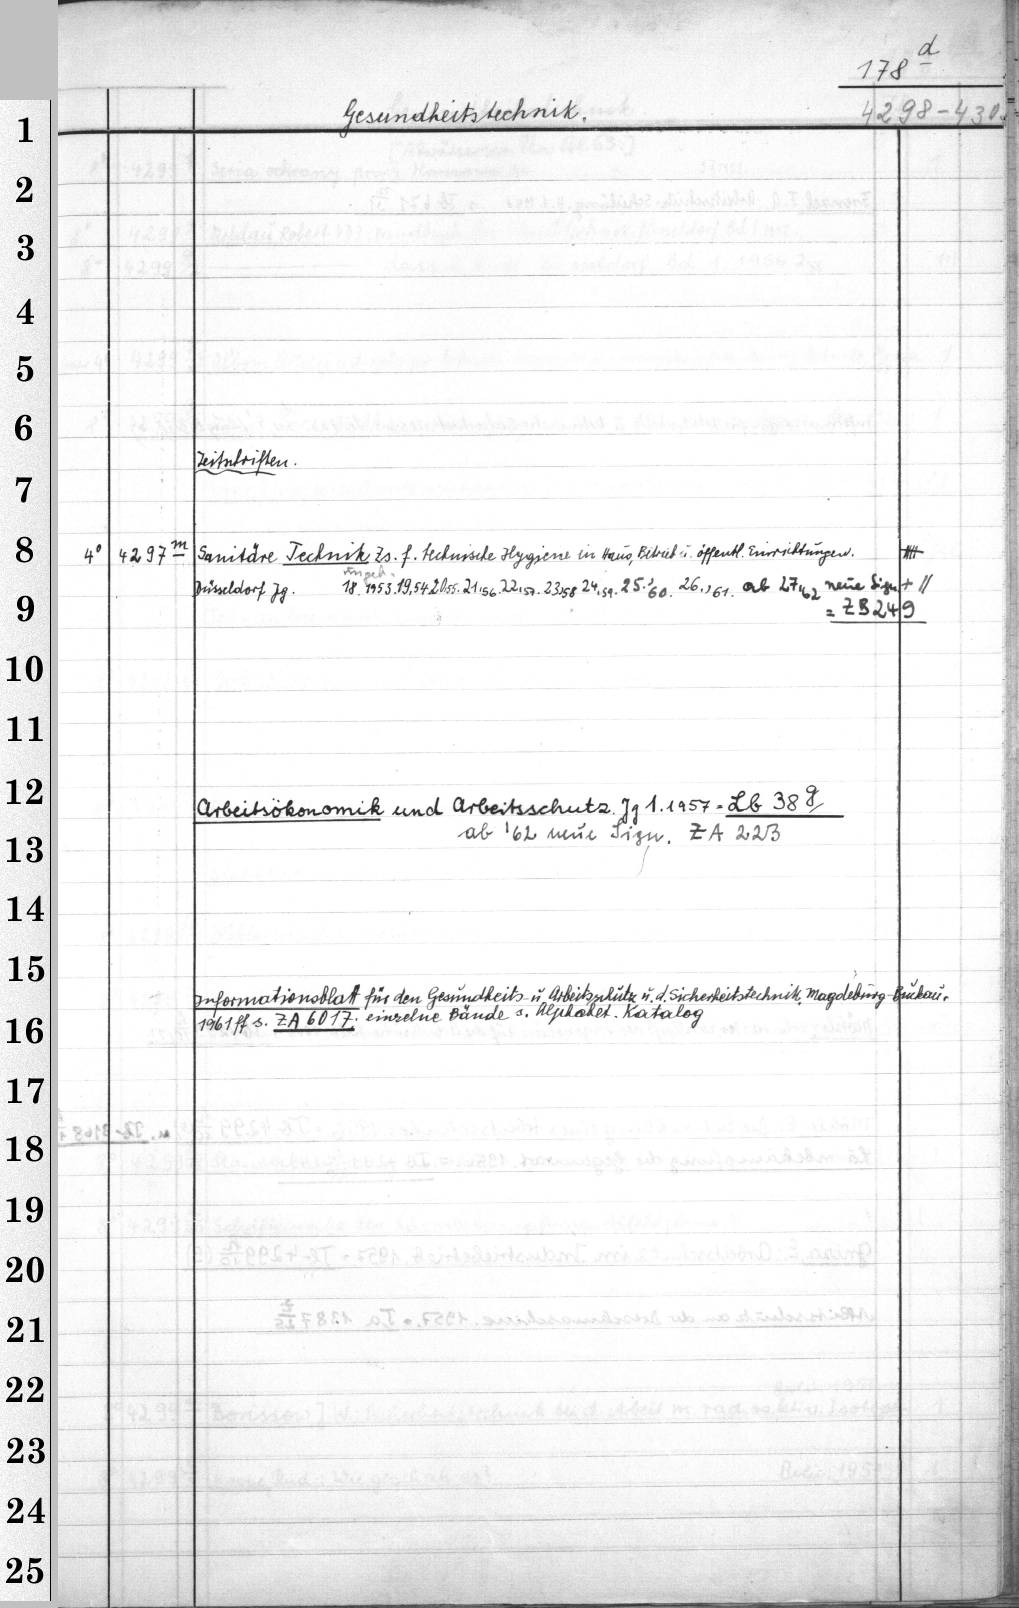 178 d
Gesundheitstechnik.
4298-430
1
2
3
4
5
6
Zeitschriften.
7
8
4° 4297 m Sanitäre Technik Zs. f. technische Hygiene in Haus, Betrieb u. öffentl. Einrichtungen.
ungeb.
Düsseldorf Jg. 18.1953.19,54.20,55.21,56.22,57.23,58 24,59.25,'60. 26.,'61. ab 27,'62 neue Sign + //
9
= ZB 249
10
11
12
Arbeitsökonomik und Arbeitsschutz. Jg 1.1957 = Lb 38 g
ab '62 neue Sign. ZA 223
13
14
15
Informationsblatt für den Gesundheits- u. Arbeitsschutz u. d. Sicherheitstechnik, Magdeburg-Buckau.
1961 ff s. ZA 6017. einzelne Bände s. Alphabet. Katalog
16
17
18
19
20
21
22
23
24
25